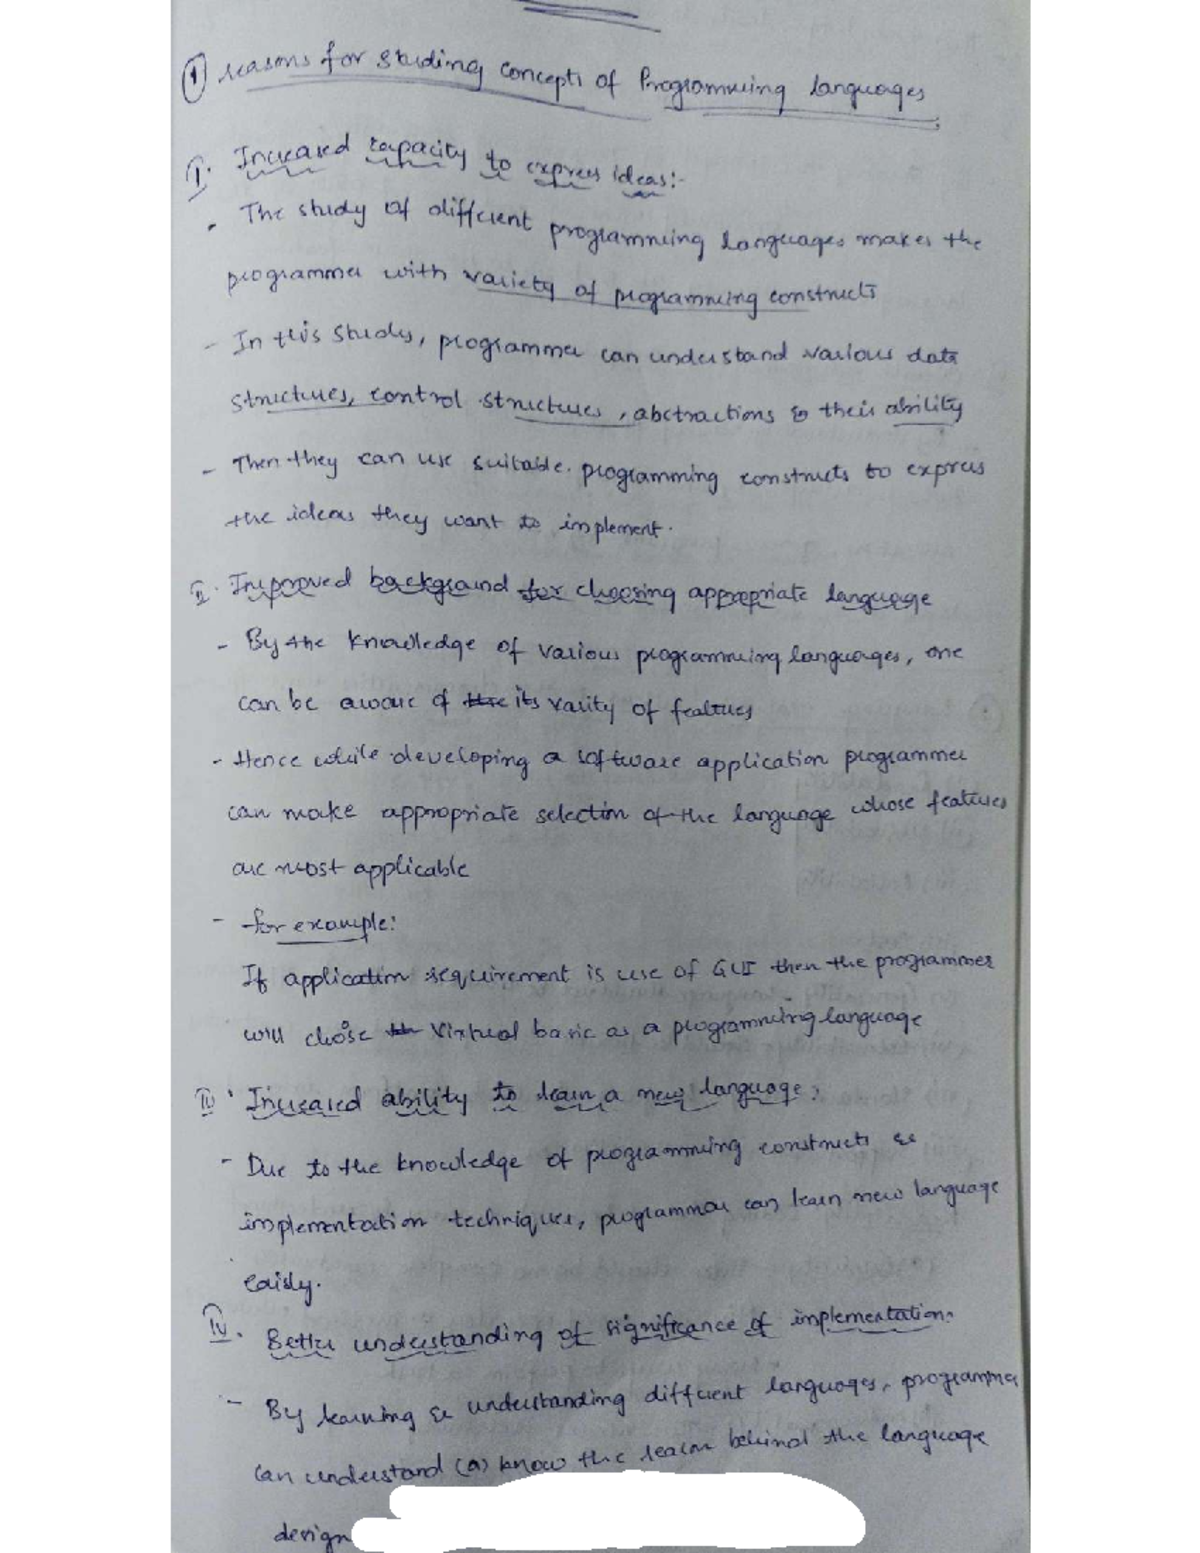 ① reasons for studing concepts of Programming languages
I. Increased capacity to express ideas:-
- The study of different programming languages makes the
programmer with variety of programming constructs
- In this study, programmer can understand various data
structures, control structures, abstractions & their ability
- Then they can use suitable programming constructs to express
the ideas they want to implement.
II. Improved background for choosing appropriate language
- By the knowledge of various programming languages, one
can be aware of its varity of features
- Hence while developing a software application programmer
can make appropriate selection of the language whose features
are most applicable
- for example:
If application requirement is use of GUI then the programmer
will choose Virtual basic as a programming language
III. Increased ability to learn a new language:
- Due to the knowledge of programming constructs &
implementation techniques, programmer can learn new language
easily.
IV. Better understanding of significance of implementation.
- By learning & understanding different languages, programmer
can understand (or) know the reason behind the language
design